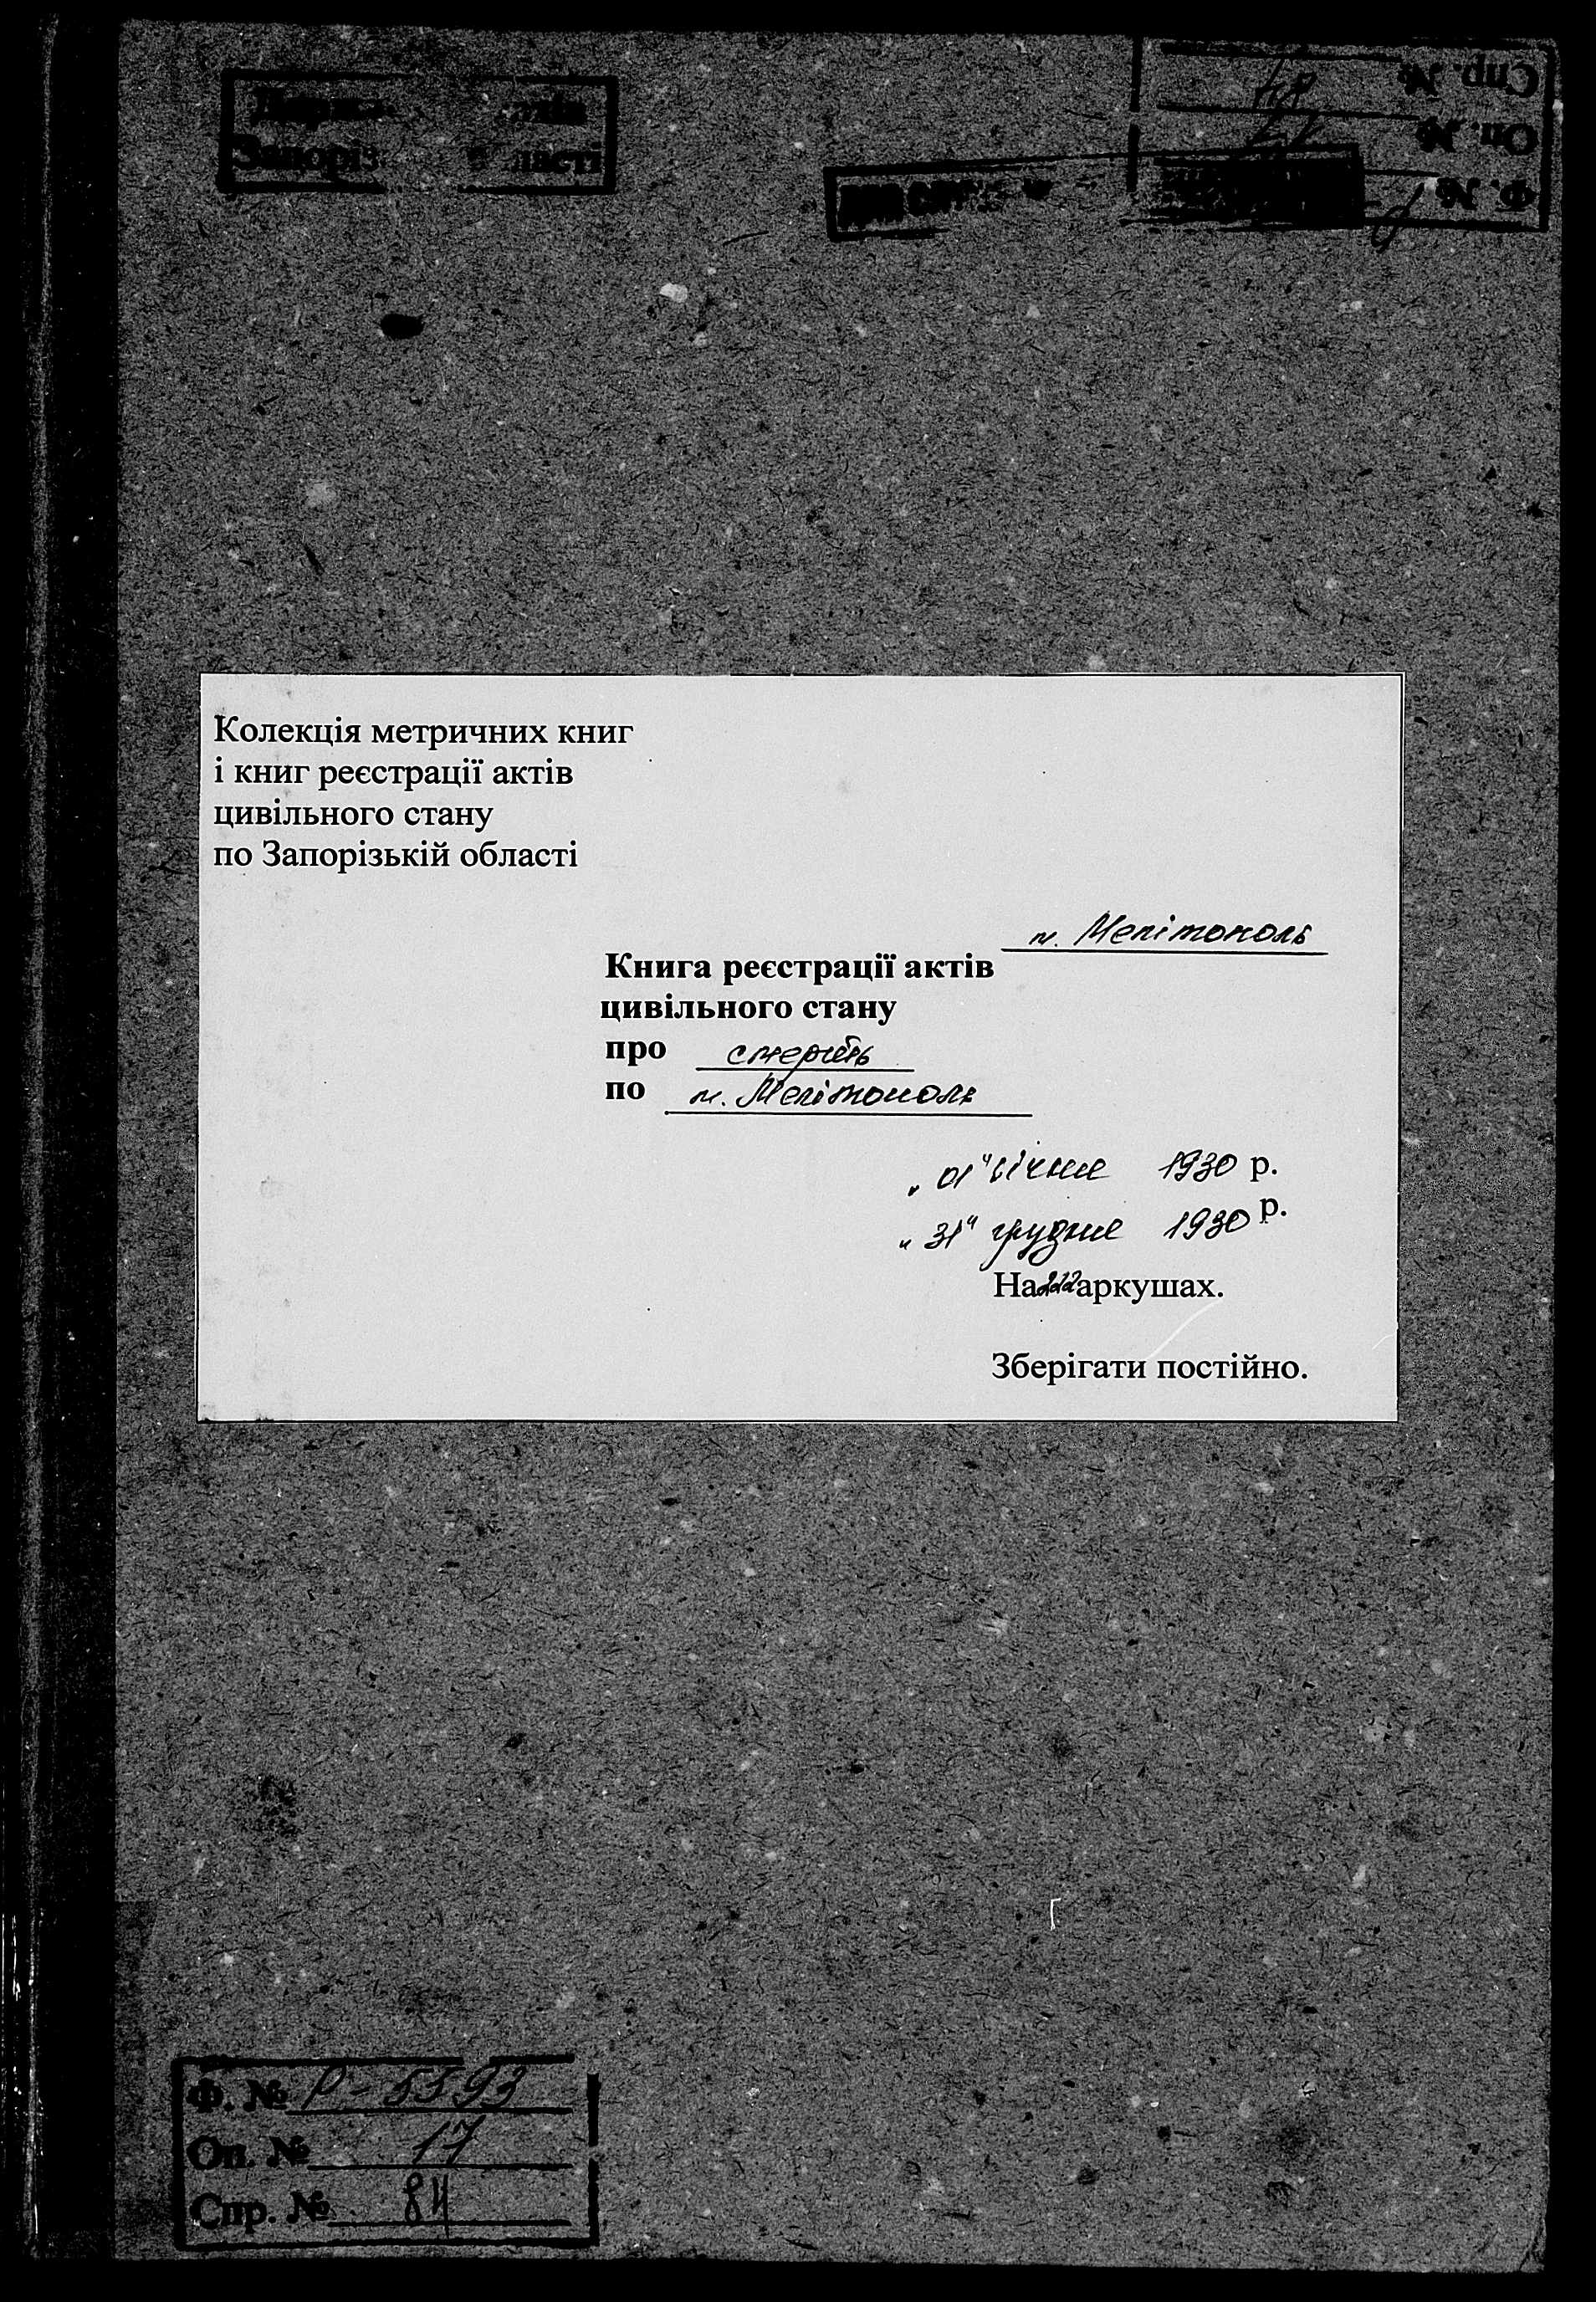 Запоріз ласті
Спр. №
Оп. №
Ф. №
Колекція метричних книг
і книг реєстрації актів
цивільного стану
по Запорізькій області
м. Мелітополь
Книга реєстрації актів
цивільного стану
про смерть
по м. Мелітополь
„ 01 " січня 1930 р.
„ 31 " грудня 1930 р.
На 222 аркушах.
Зберігати постійно.
Ф. № Р-5593
Оп. № 17
Спр. № 84